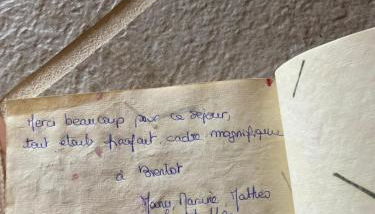 Merci beaucoup pour ce séjour,
tout était parfait, cadre magnifique
à Bientot
Marine, Matheo